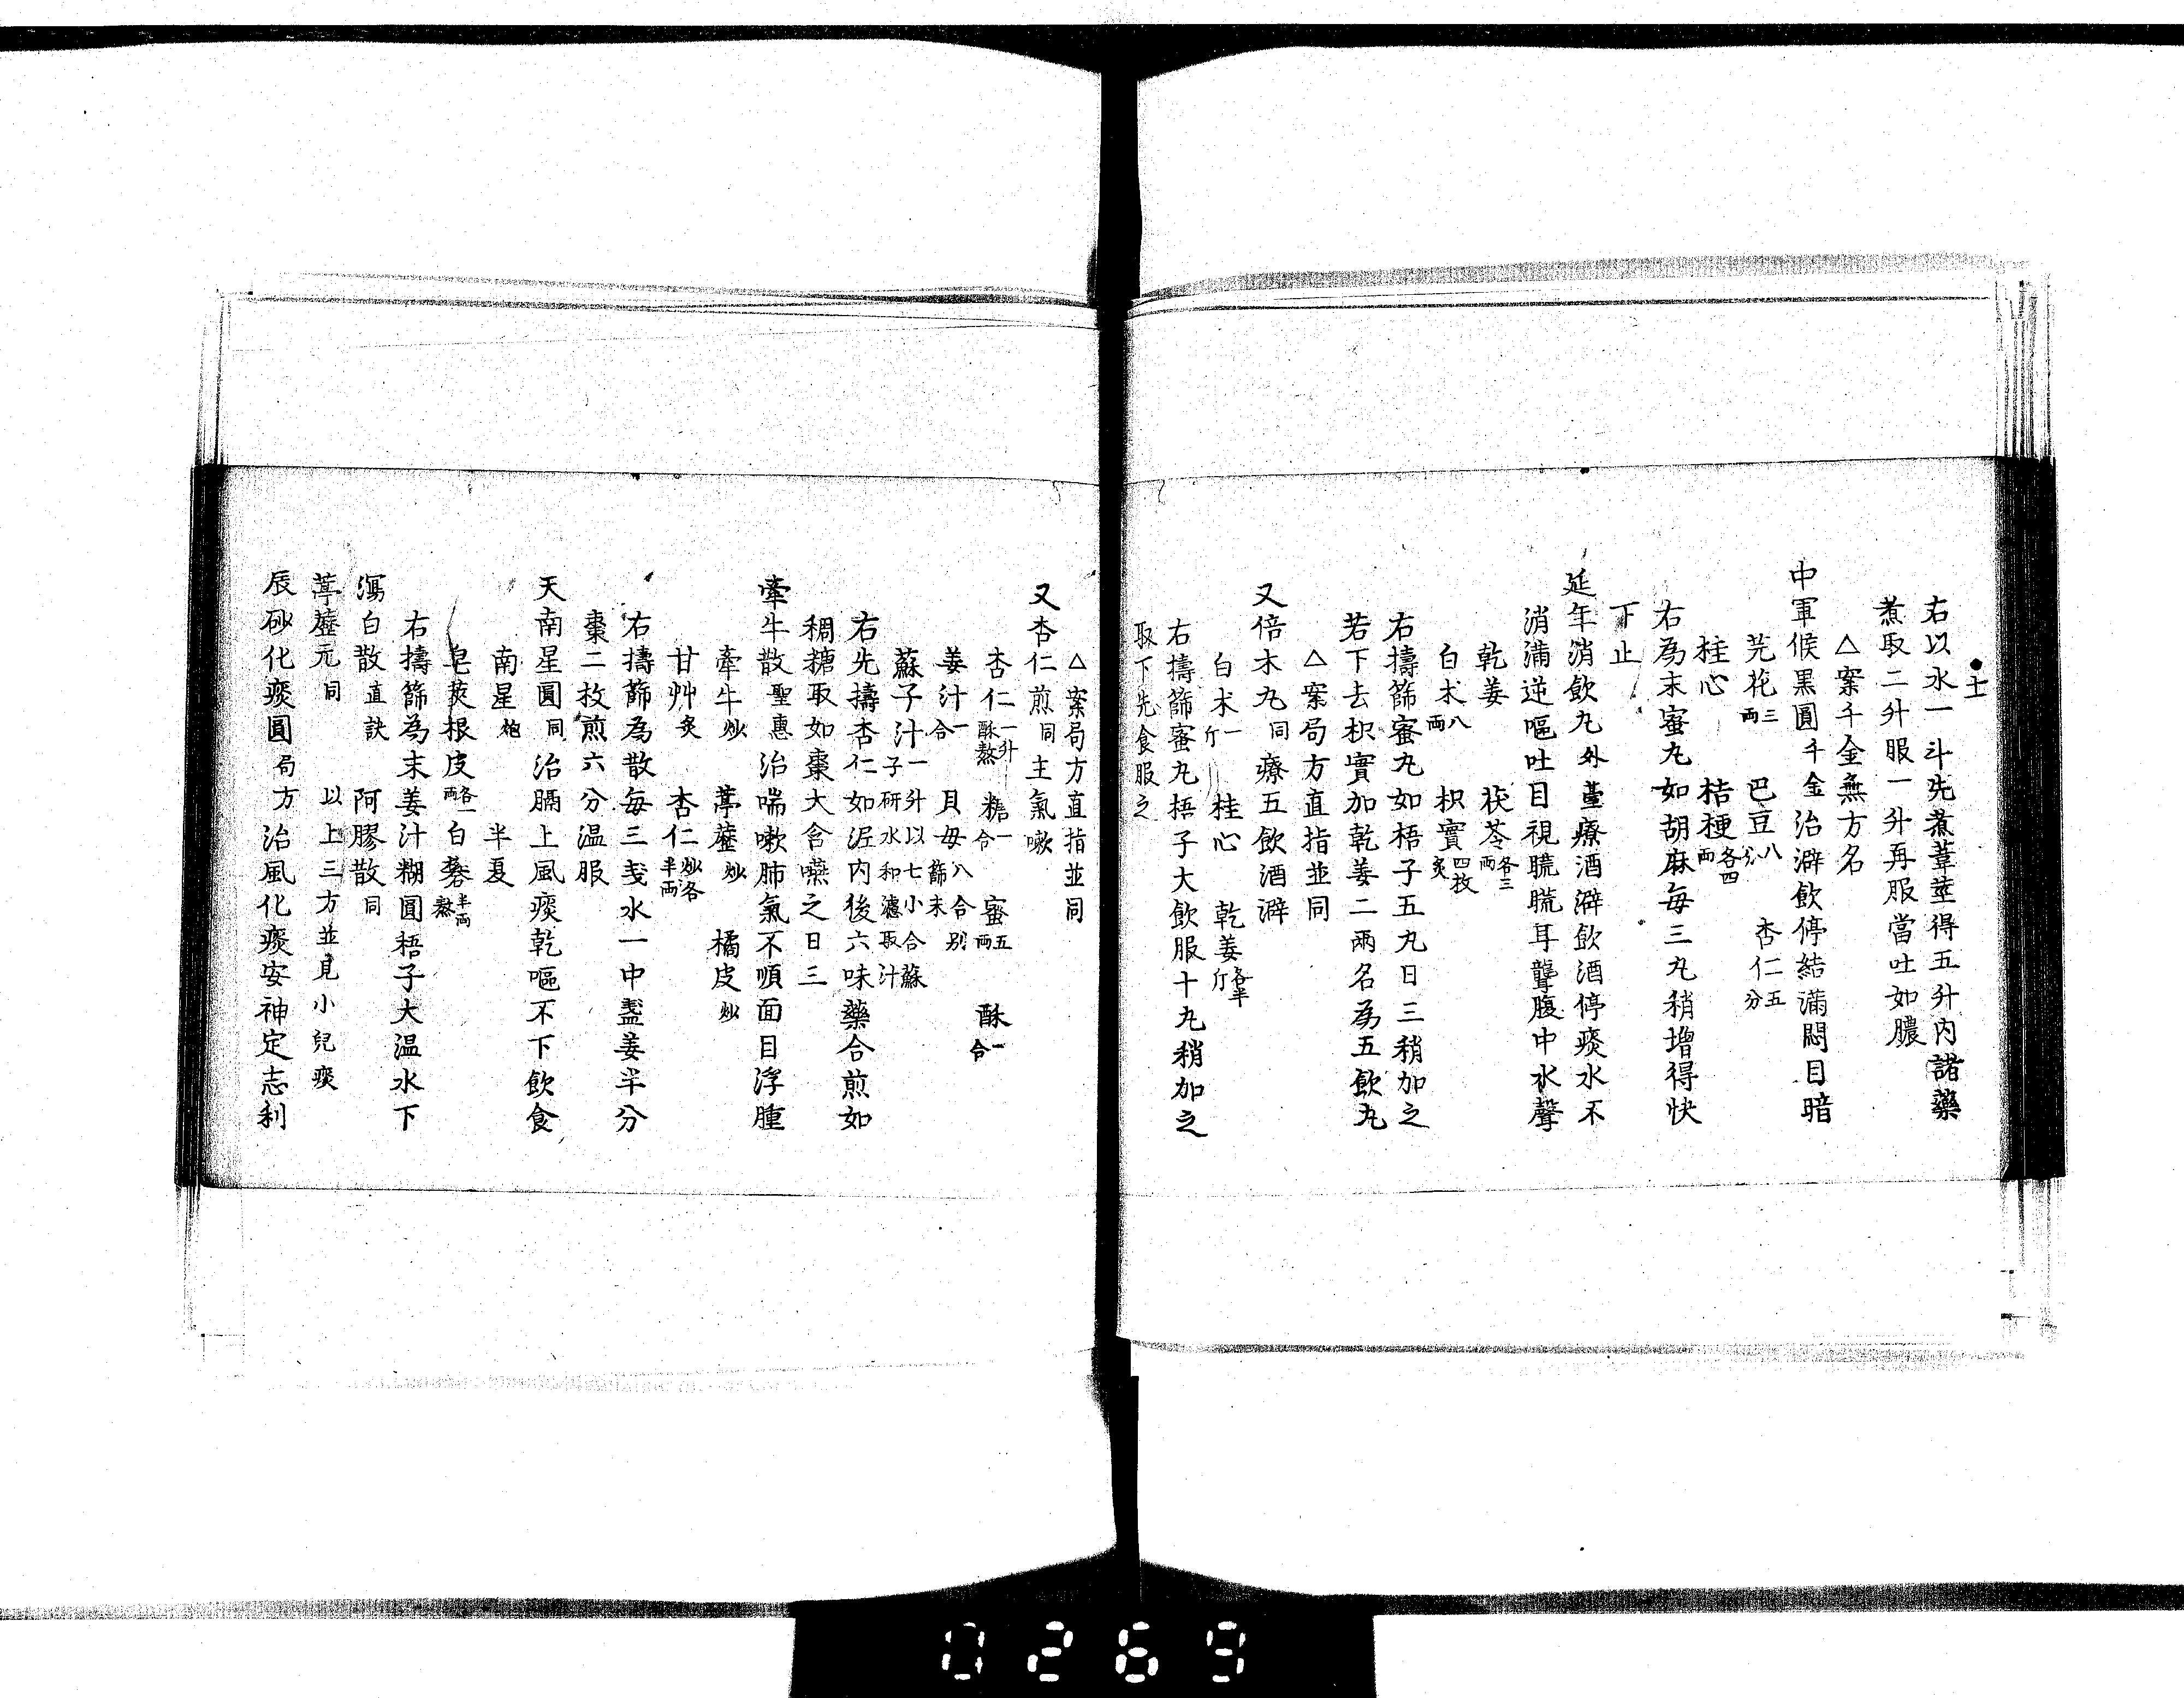 ●十
右以水一斗先煮葦莖得五升内諸藥
煮取二升服一升再服當吐如膿
△案千金無方名
中軍候黒圓千金治澼飲停結滿悶目暗
芫花三両 巴豆八分 杏仁五分
桂心 桔梗各四両
右為末蜜丸如胡麻毎三丸稍增得快
下止
延年消飲丸外臺療酒澼飲酒停痰水不
消滿逆嘔吐目視䀮䀮耳聾腹中水聲
乾姜 茯苓各三両
白朮八両 枳實四枚炙
右擣篩蜜丸如梧子五丸日三稍加之
若下去枳實加乾姜二兩名為五飲丸
△案局方直指並同
又倍朮丸同療五飲酒澼
白朮一斤 桂心 乾姜各半斤
右擣篩蜜丸梧子大飲服十丸稍加之
取下先食服之
△案局方直指並同
又杏仁煎同主氣嗽
杏仁一升酥熬 糖一合 蜜五両 酥一合
姜汁一合 貝母八合別篩末
蘇子汁一升以七小合蘇子研水和濾取汁
右先擣杏仁如泥内後六味藥合煎如
稠糖取如棗大含嚥之日三
牽牛散聖惠治喘嗽肺氣不順面目浮腫
牽牛炒 葶藶炒 橘皮炒
甘艸炙 杏仁炒各半両
右擣篩為散毎三戔水一中盞姜半分
棗二枚煎六分温服
天南星圓同治膈上風痰乾嘔不下飲食
南星炮 半夏
皂莢根皮各一両 白礬半両熬
右擣篩為末姜汁糊圓梧子大温水下
瀉白散直訣 阿膠散同
葶藶元同 以上三方並見小兒痰
辰砂化痰圓局方治風化痰安神定志利
0269